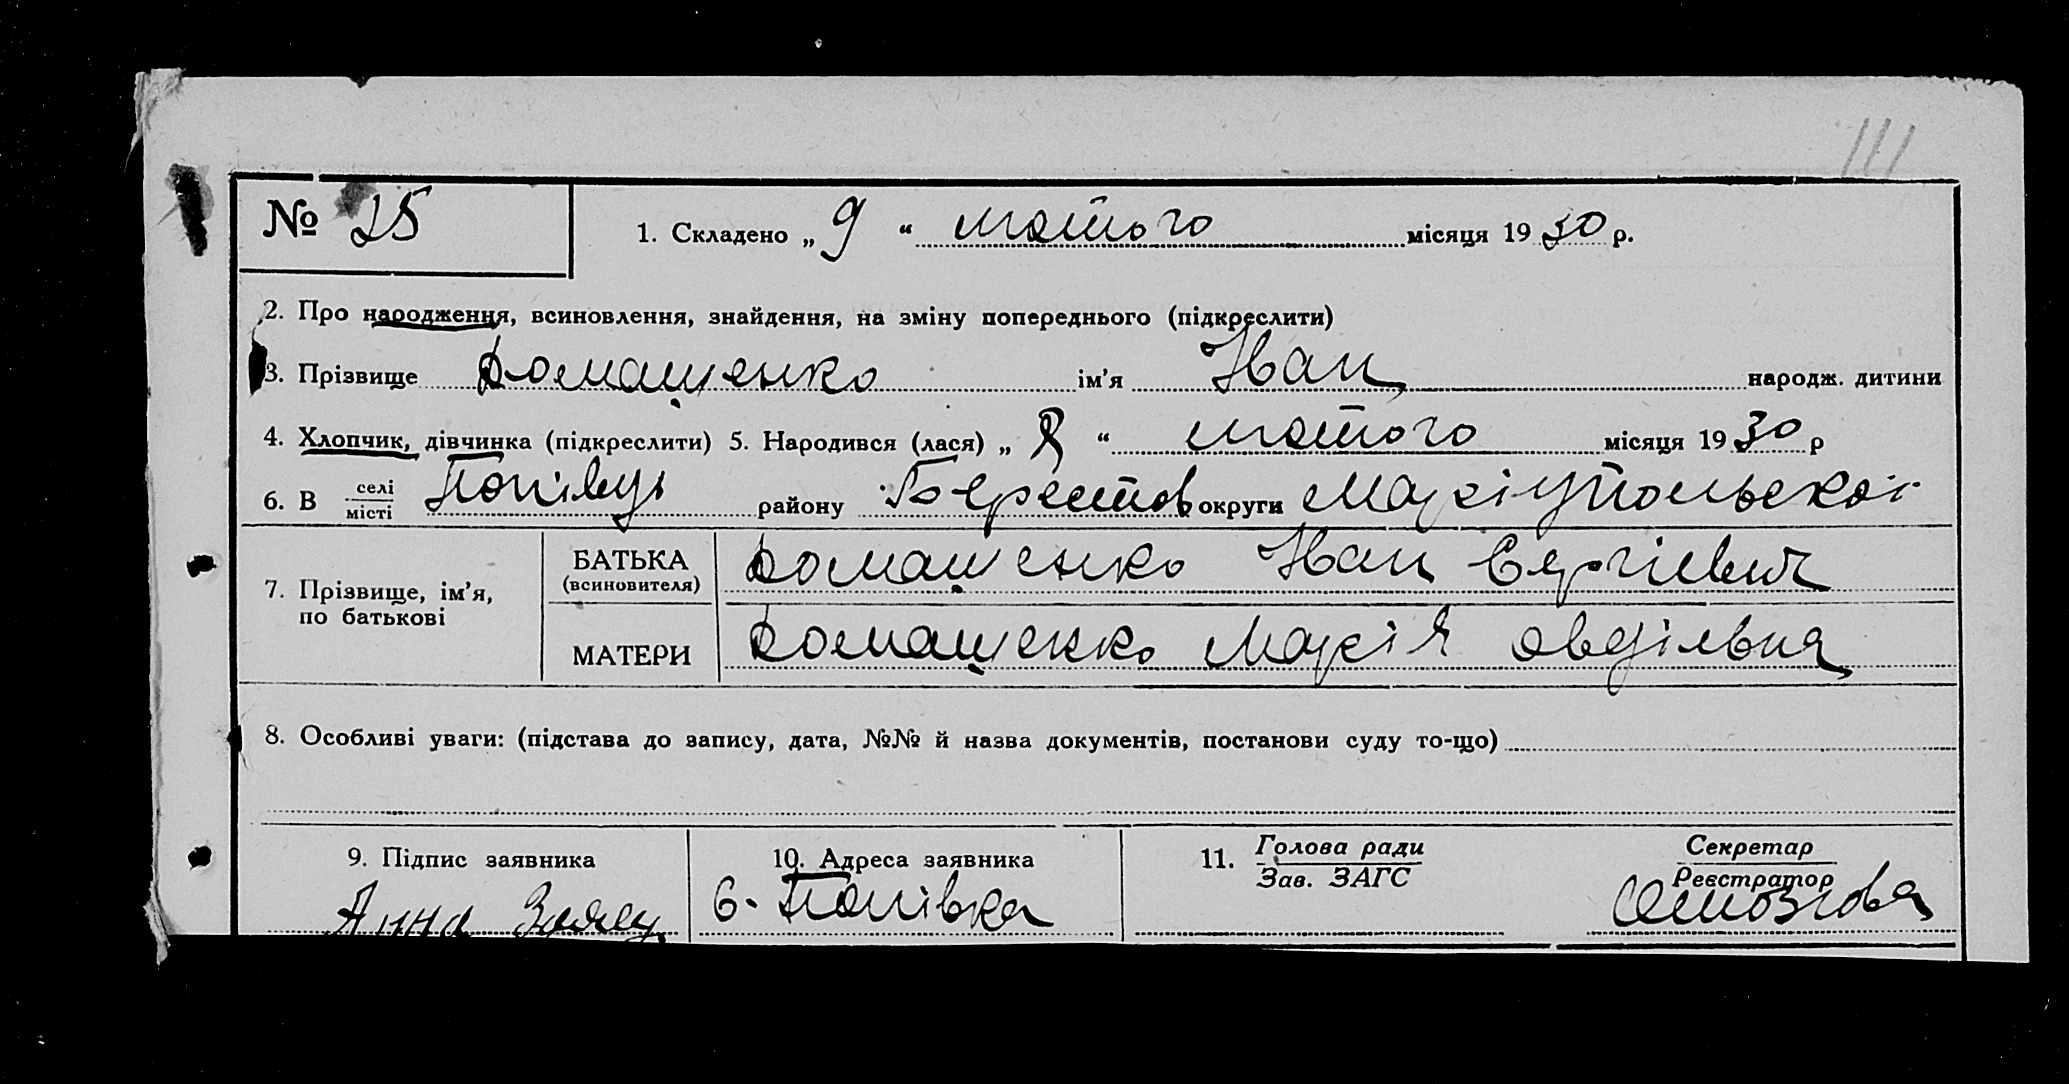 111
№ 25
1. Складено „ 9 “ лютого місяця 19 30 р.
2. Про народження, всиновлення, знайдення, на зміну попереднього (підкреслити)
3. Прізвище Домашенко ім’я Іван народж. дитини
4. Хлопчик, дівчинка (підкреслити) 5. Народився (лася) „ 8 “ лютого місяця 19 30 р
6. В селі місті Попівці району Берестов округи Маріупольської
7. Прізвище, ім’я, по батькові
БАТЬКА (всиновителя) Домашенко Іван Сергієвич
МАТЕРИ Домашенко Марія Авділвна
8. Особливі уваги: (підстава до запису, дата, №№ й назва документів, постанови суду то-що)
9. Підпис заявника
Анна
10. Адреса заявника
С. Попівка
11. Голова ради
Зав. ЗАГС
Секретар
Реєстратор